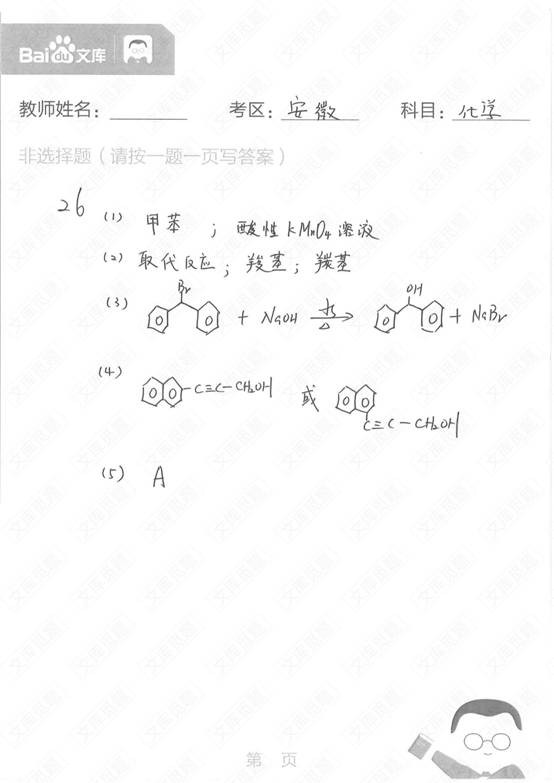 Baidu文库
教师姓名: 考区: 安徽 科目: 化学
非选择题（请按一题一页写答案）
26 (1) 甲苯 ; 酸性KMnO4溶液
(2) 取代反应; 羧基; 羰基
(3) Br + NaOH 水 △ OH + NaBr
(4) -C≡C-CH2OH 或 C≡C-CH2OH
(5) A
第 页